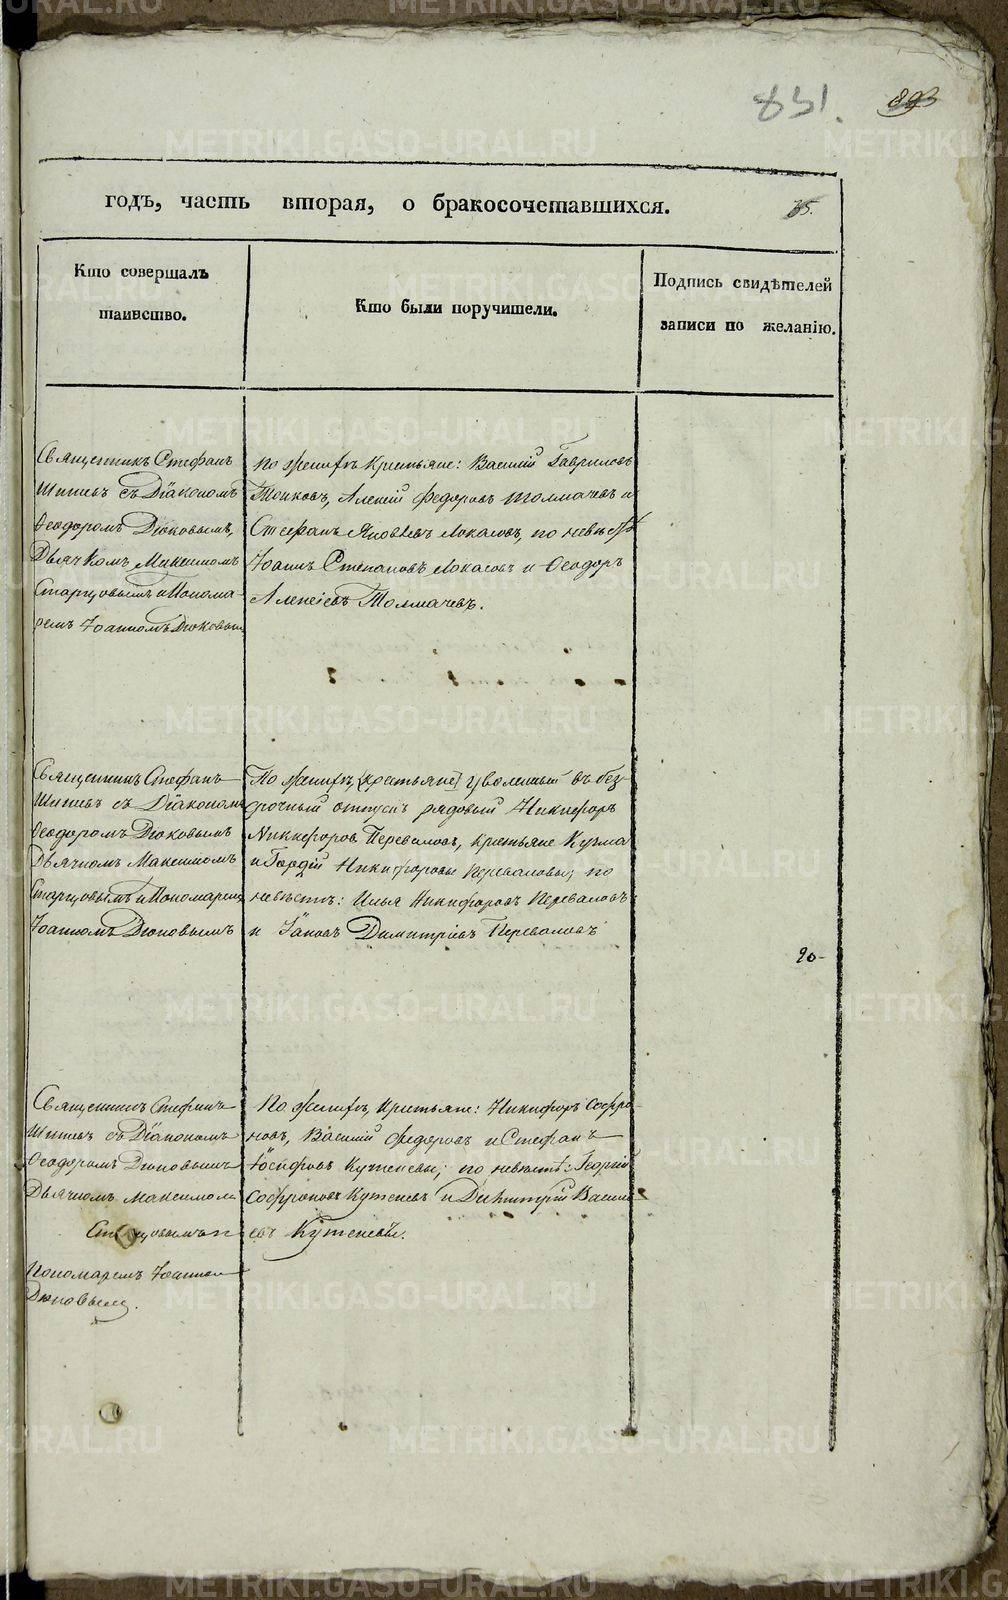 831.
893
годъ, часть вторая, о бракосочетавшихся.
Кто совершалъ таинство.
Кто были поручители.
Подпись свидѣтелей записи по желанію.
Священникъ Стефанъ
съ Діакономъ
Ѳеодоромъ Дюковымъ,
Дьячкомъ Максимомъ
Старцовымъ и Понома-
ремъ Іоанномъ Дюковым
По женихѣ крестьяне: Василій Гавриловъ
Алексій Федоровъ Толмачевъ и
Стефанъ Яковлевъ Локасовъ, по невѣстѣ
Іоаннъ Степановъ Локасовъ и Ѳеодоръ
Алексіевъ Толмачевъ.
Священникъ Стефанъ
съ Діакономъ
Ѳеодоромъ Дюковымъ
Дьячкомъ Максимомъ
Старцовымъ и Пономаремъ
Іоанномъ Дюковымъ
По женихѣ, (крестьяне) уволенный въ без-
срочный отпускъ рядовый Никифоръ
Никифоровъ Переваловъ, крестьяне Кузма
и Гордій Никифоровы Переваловы; по
невѣстѣ: Илья Никифоровъ Переваловъ
и Іаковъ Димитріевъ Переваловъ
20-
Священникъ Стефанъ
съ Діакономъ
Ѳеодоромъ Дюковымъ
Дьячкомъ Максимомъ
Старцовымъ и
Пономаремъ Іоанном
Дюковым.
По женихѣ, крестьяне: Никифоръ Софро-
новъ, Василій Федоровъ и Стефанъ
Іосифовъ Кутеневы; по невѣстѣ: Георгій
Софроновъ Кутеневъ и Димитрій Василі-
евъ Кутеневы.
METRIKI.GASO-URAL.RU